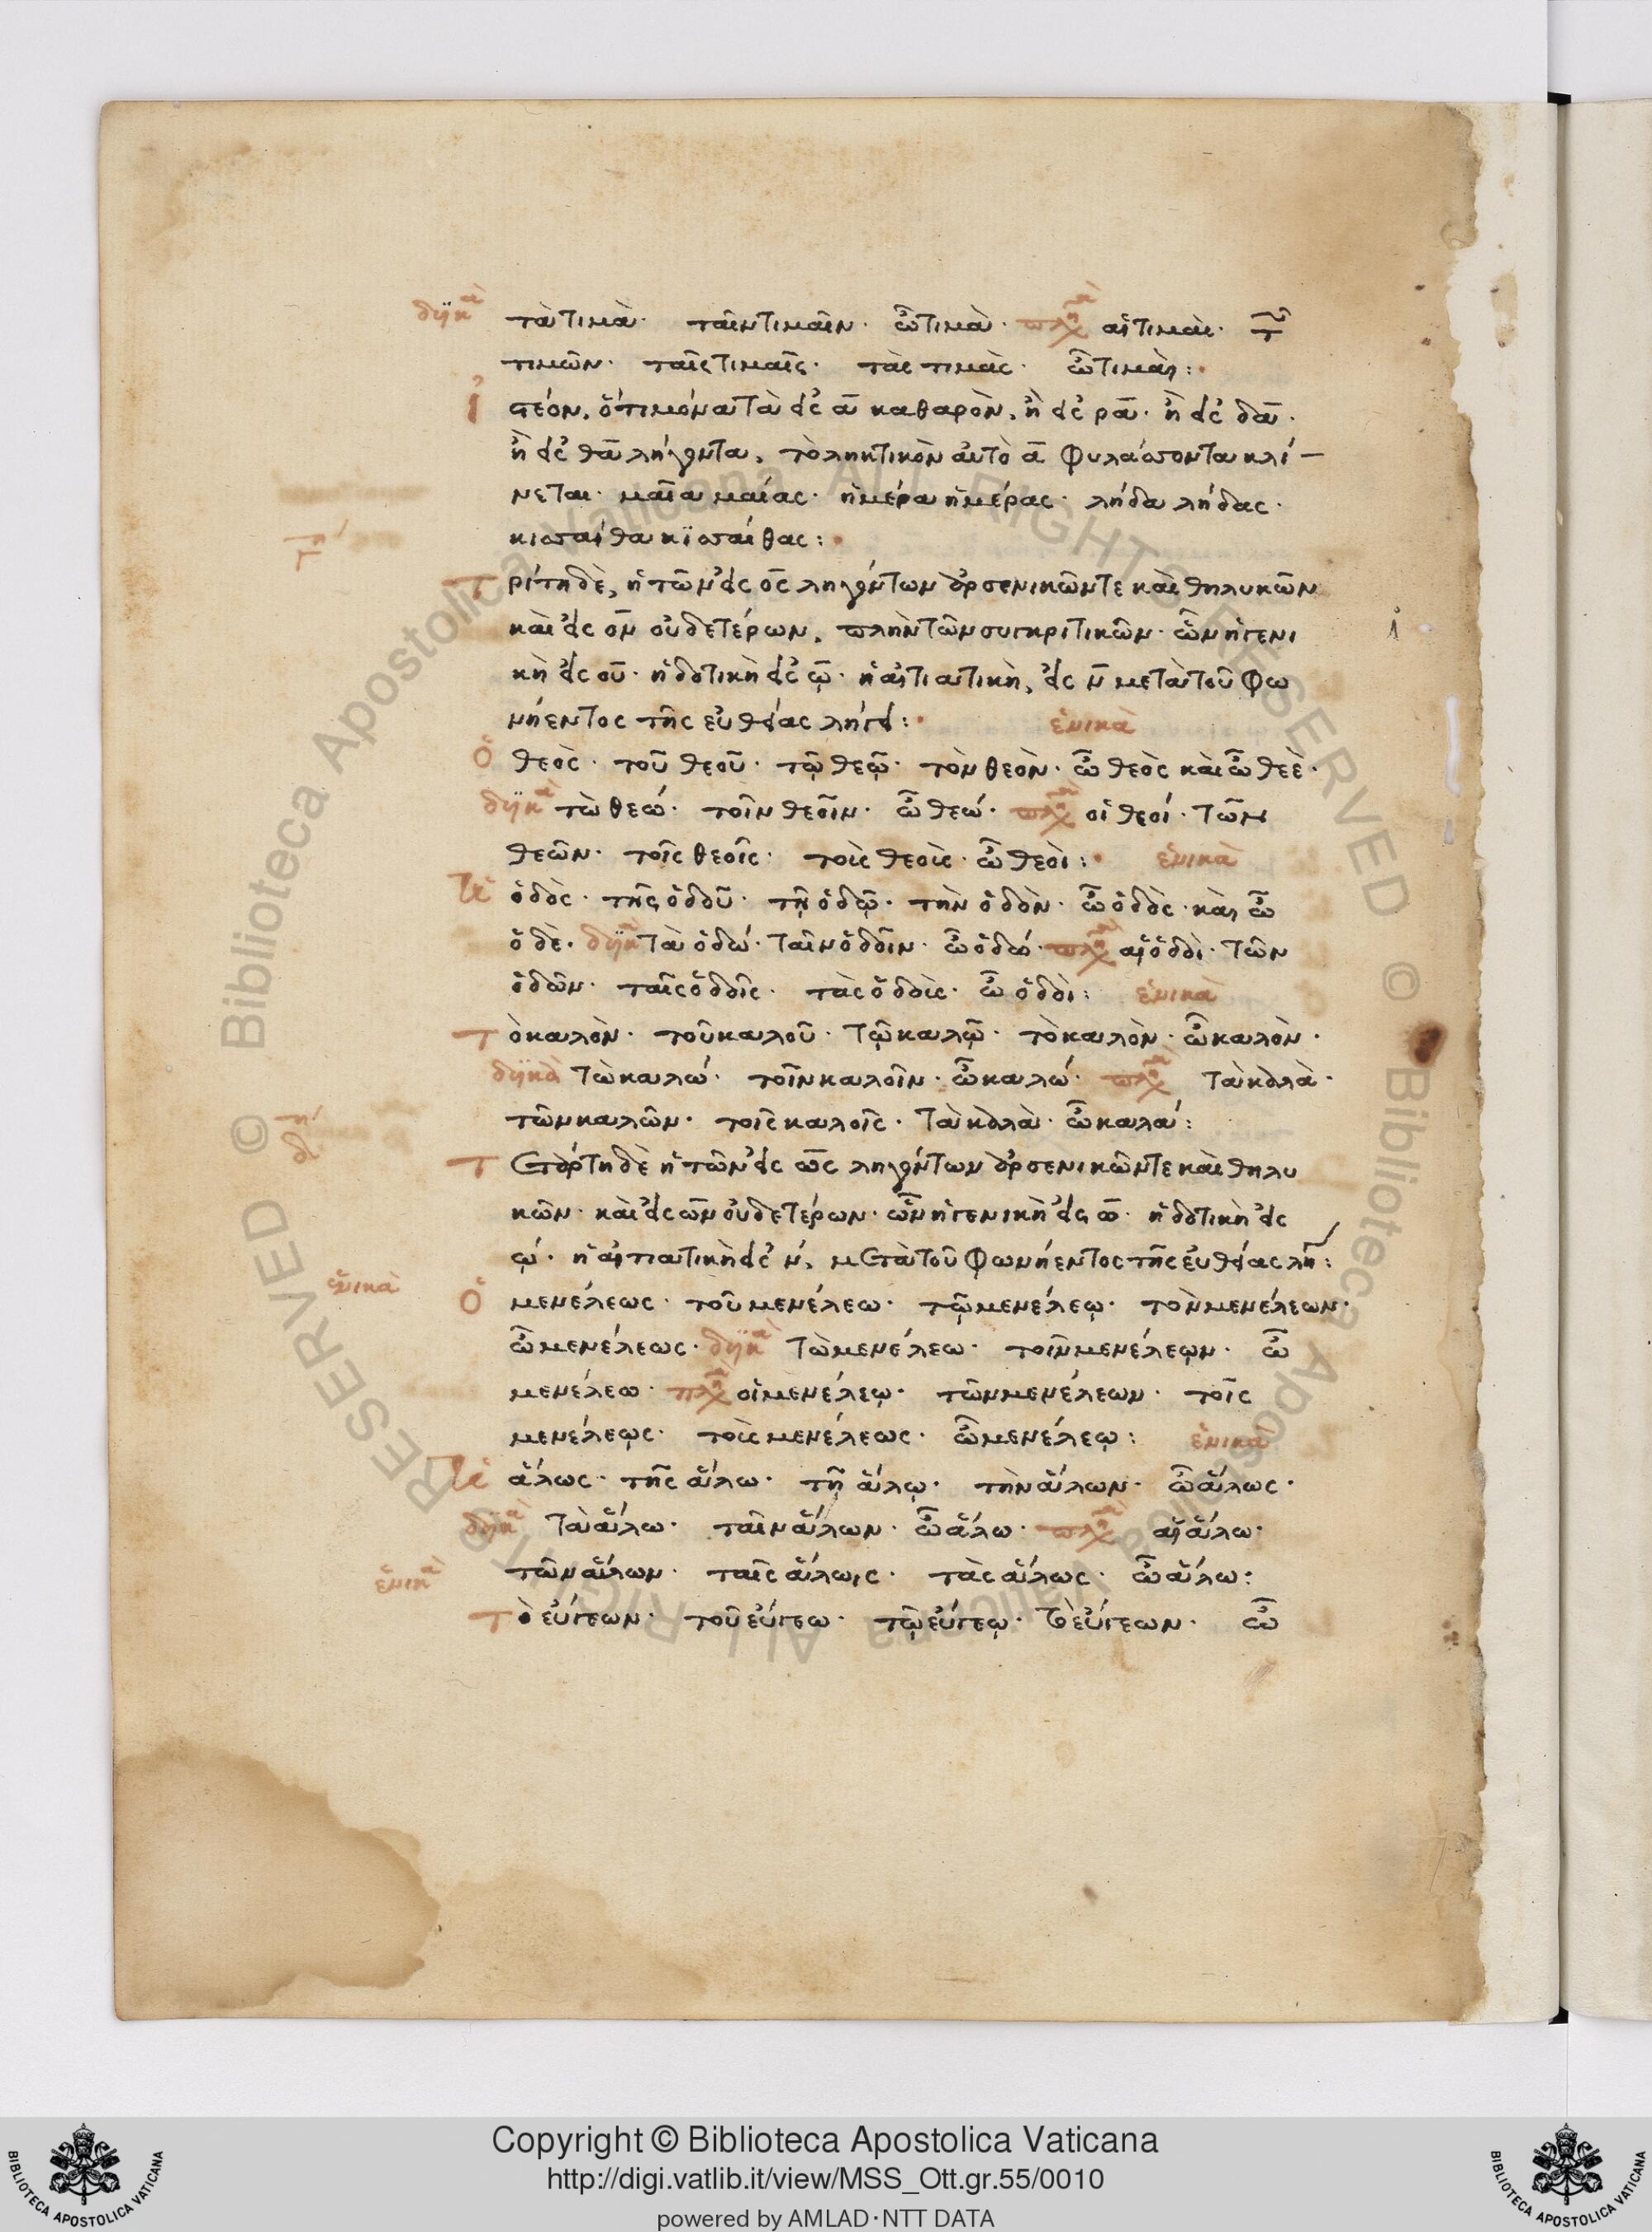 δυϊκὰ τὰ τιμὰ· ταῖν τιμαῖν· ὦ τιμὰ· αἱ τιμαὶ· τ
τιμῶν· ταῖς τιμαῖς· τὰς τιμὰς· ὦ τιμαὶ:
ἰστέον, ὅτι μόνα τὰ εἰς α καθαρὸν, ἢ εἰς ρα· ἢ εἰς δα·
ἢ εἰς θα λήγοντα, τὸ ληκτικὸν αὐτὸ α φυλάσσοντα κλί-
νεται· μαῖα μαίας· ἡμέρα ἡμέρας· λήδα λήδας·
κισσαίθα κισσαίθας:
γʹ
Τρίτη δὲ, ἡ τῶν εἰς ος ληγόντων ἀρσενικῶν τε καὶ θηλυκῶν
καὶ εἰς ον οὐδετέρων, πλὴν τῶν συγκριτικῶν· ὧν ἡ γενι
κὴ εἰς ου· ἡ δοτικὴ εἰς ω· ἡ αἰτιατικὴ, εἰς ν μετὰ τοῦ φω
νήεντος τῆς εὐθείας λήγει: ἑνικὰ
Ὁ θεὸς· τοῦ θεοῦ· τῷ θεῷ· τὸν θεὸν· ὦ θεὸς καὶ ὦ θεὲ·
δυϊκὰ τὼ θεώ· τοῖν θεοῖν· ὦ θεώ· οἱ θεοί· τῶν
θεῶν· τοῖς θεοῖς· τοὺς θεοὺς· ὦ θεοὶ: ἑνικὰ
Ἡ ὁδὸς· τῆς ὁδοῦ· τῇ ὁδῷ· τὴν ὁδὸν· ὦ ὁδὸς· καὶ ὦ
ὁδὲ· δυϊκὰ τὰ ὁδώ· ταῖν ὁδοῖν· ὦ ὁδώ· αἱ ὁδοὶ· τῶν
ὁδῶν· ταῖς ὁδοῖς· τὰς ὁδοὺς· ὦ ὁδοὶ: ἑνικὰ
Τὸ καλὸν· τοῦ καλοῦ· τῷ καλῷ· τὸ καλὸν· ὦ καλὸν·
δυϊκὰ τὼ καλώ· τοῖν καλοῖν· ὦ καλώ· τὰ καλὰ·
τῶν καλῶν· τοῖς καλοῖς· τὰ καλὰ· ὦ καλά:
δʹ
Τετάρτη δὲ ἡ τῶν εἰς ως ληγόντων ἀρσενικῶν τε καὶ θηλυ
κῶν· καὶ εἰς ων οὐδετέρων· ὧν ἡ γενικὴ εἰς ω· ἡ δοτικὴ εἰς
ῳ· ἡ αἰτιατικὴ εἰς ν, μετὰ τοῦ φωνήεντος τῆς εὐθείας λή:
ἑνικὰ Ὁ μενέλεως· τοῦ μενέλεω· τῷ μενέλεῳ· τὸν μενέλεων·
ὦ μενέλεως· δυϊκὰ τὼ μενέλεω· τοῖν μενέλεῳν· ὦ
μενέλεω· οἱ μενέλεῳ· τῶν μενέλεων· τοῖς
μενέλεῳς· τοὺς μενέλεως· ὦ μενέλεῳ: ἑνικὰ
Ἡ ἅλως· τῆς ἅλω· τῇ ἅλῳ· τὴν ἅλων· ὦ ἅλως·
δυϊκὰ τὰ ἅλω· ταῖν ἅλων· ὦ ἅλω· αἱ ἅλω·
τῶν ἅλων· ταῖς ἅλωις· τὰς ἅλως· ὦ ἅλω:
ἑνικὰ
Τὸ εὔγεων· τοῦ εὔγεω· τῷ εὔγεῳ· τὸ εὔγεων· ὦ
Copyright © Biblioteca Apostolica Vaticana
http://digi.vatlib.it/view/MSS_Ott.gr.55/0010
powered by AMLAD·NTT DATA